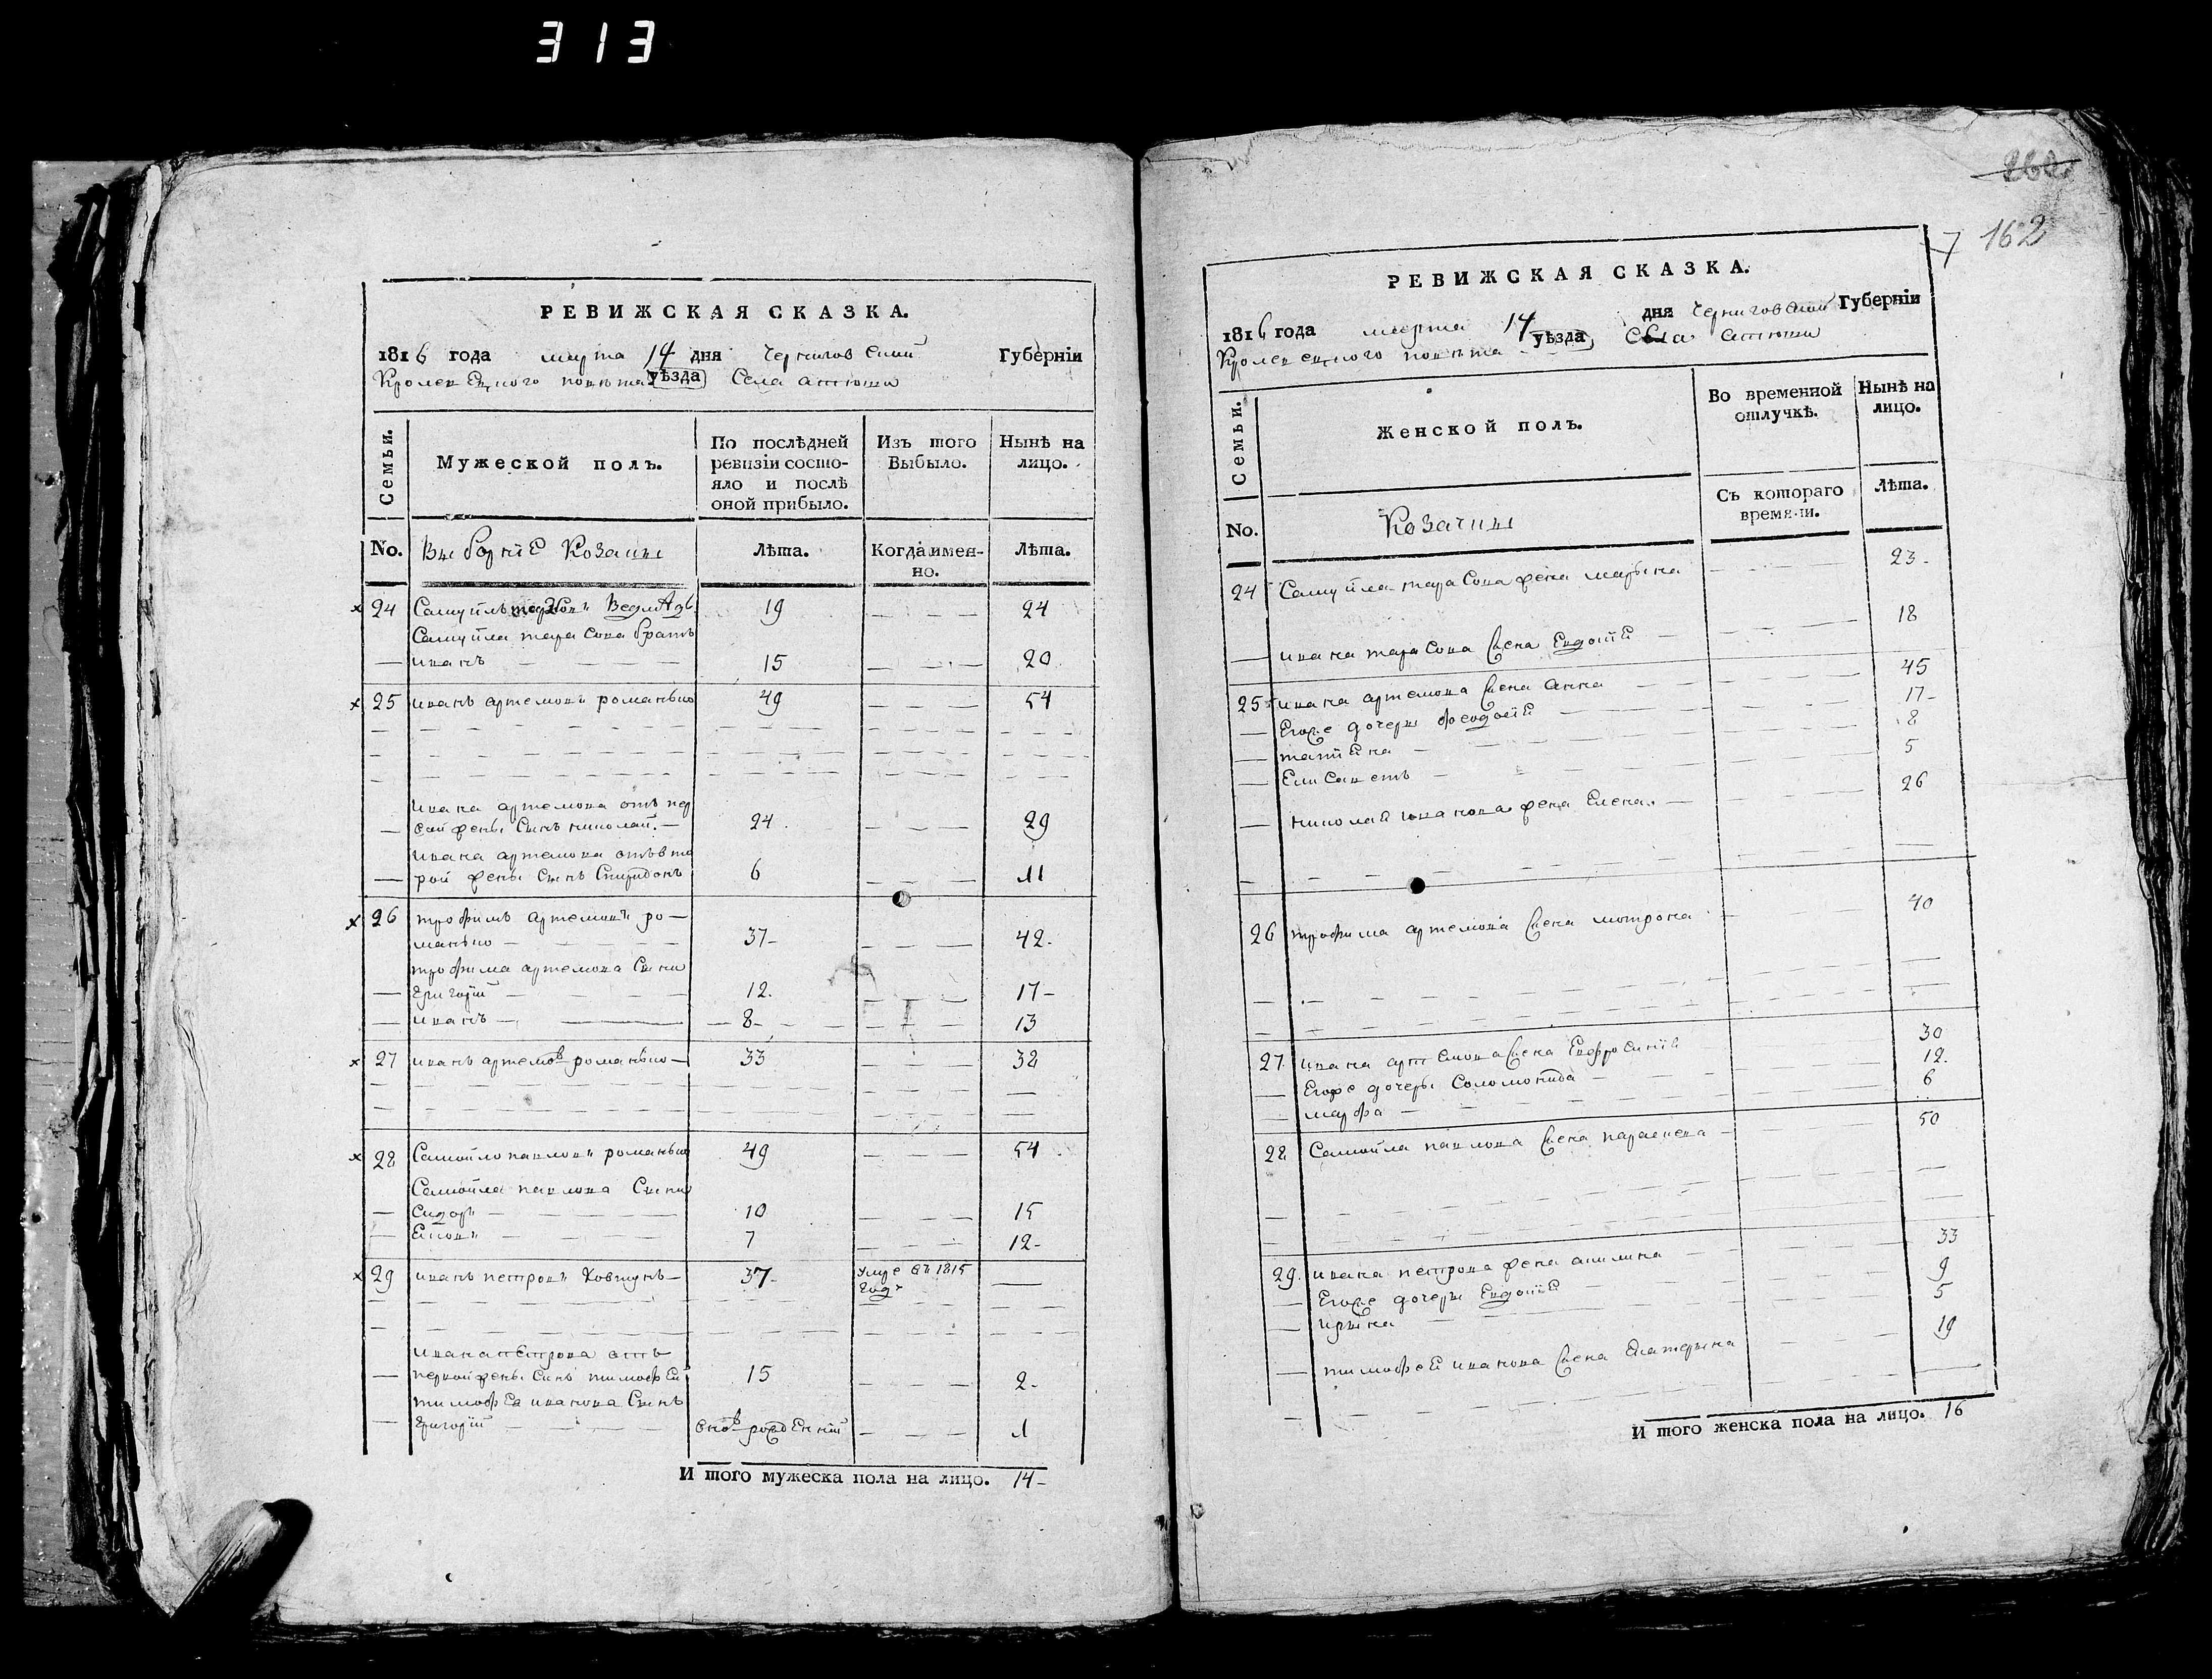 313
РЕВИЖСКАЯ СКАЗКА.
1816 года марта 14 дня Чернѣговской Губернїи
Кролевецкого повѣта уѣзда Села атюши
Семьи.
Мужеской полъ.
По послѣдней ревизїи состояло и послѣ оной прибыло.
Изъ того Выбыло.
Нынѣ на лицо.
No.
Выборнїе Козаки
Лѣта.
Когда именно.
Лѣта.
24 Самуйлъ 19 24
Самуйла тарасова братъ
иванъ 15 20
25 иванъ артемовъ романько 49 54
ивана артемова отъ пер
вой жены Сынъ николай. 24 29
ивана артемова отъ вто
рой жены Сынъ Спиридонъ 6 11
26 трофимъ артемовъ ро—
манько 37 42
трофима артемова Сыны
Григорїй 12. 17
иванъ 8 13
27 иванъ артемов романько 33 38
28 Самойло павловъ романько 49 54
Самойла павлова Сыны
Сидоръ 10 15
7 12
29 иванъ петровъ Ковтунъ 37 умре въ 1815
Годѣ
ивана петрова отъ
первой жены Синъ тимофей 15 2
тимофея иванова Сынъ
Григорїй внов рожденнїй 1
И того мужеска пола на лицо. 14
262
162
РЕВИЖСКАЯ СКАЗКА.
1816 года марта 14 дня Черниговской Губернїи
Кролевецкого повѣта уѣзда Села атюши
Семьи.
Женской полъ.
Во временной отлучкѣ.
Нынѣ на лицо.
No.
Козачки
Съ котораго времяни.
Лѣта.
24 Самуйла тарасова жена марьина 23
ивана тарасова жена Евдокїе 18
25 ивана артемова жена анна 45
Егоже дочеры феодосїе 17
татїена 8
Елисаветъ 5
николая иванова жена Елена. 26
26 трофима артемова жена мотрона 40
27 ивана артемова жена Евфросинїе 30
Егоже дочеры Соломонида 12.
марфа 6
28 Самойла павлова жена параскева 50
29. ивана петрова жена акилина 33
Егоже дочеры Евдокїе 9
ирына 5
тимофея иванова жена Екатерына 19
И того женска пола на лицо. 16